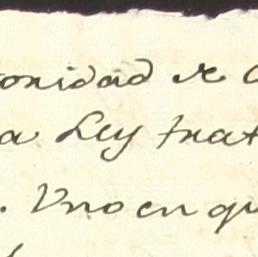 onidad de
a Ley trat
. Vno en qu